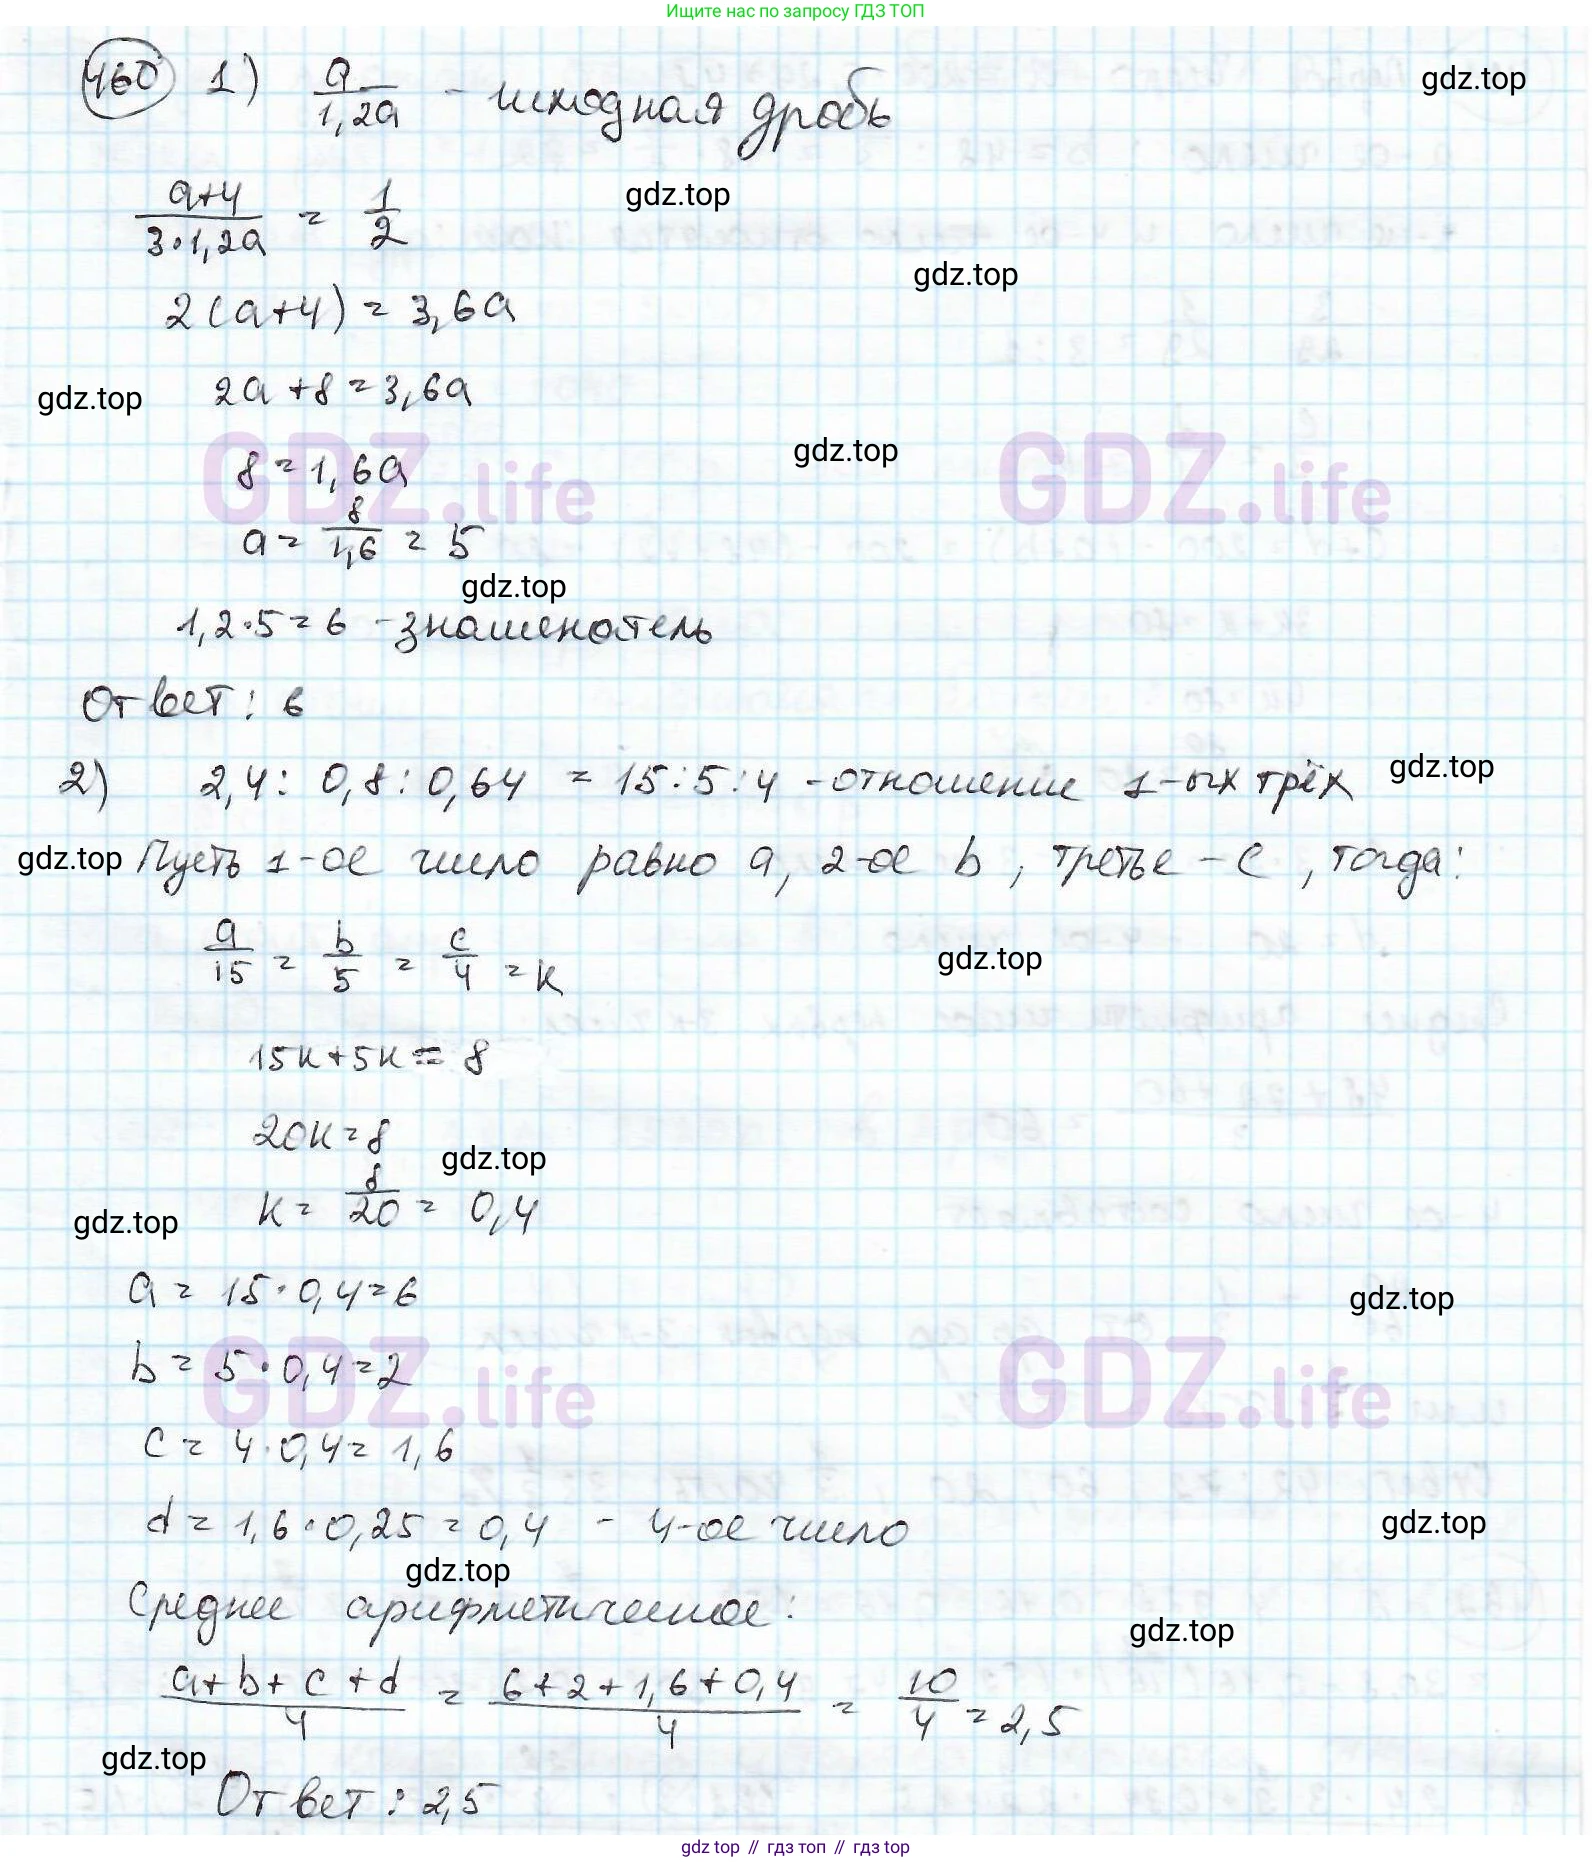 Ищите нас по запросу ГДЗ ТОП
460 1) a/1,2a - исходная дробь
gdz.top
(a+4)/(3·1,2a) = 1/2
gdz.top
gdz.top
2(a+4) = 3,6a
2a+8=3,6a
gdz.top
GDZ.life
gdz.top
GDZ.life
8=1,6a
a= 8/1,6 = 5
gdz.top
1,2·5=6 - знаменатель
Ответ: 6
2) 2,4: 0,8:0,64 = 15:5:4 - отношение 1-ых трёх
gdz.top
gdz.top
Пусть 1-ое число равно a, 2-ое b, третье - c, тогда:
a/15 = b/5 = c/4 = k
gdz.top
15k+5k=8
20k=8
gdz.top
k= 8/20 = 0,4
gdz.top
a= 15·0,4=6
gdz.top
b= 5·0,4=2
GDZ.life
GDZ.life
c= 4·0,4= 1,6
d= 1,6·0,25=0,4 - 4-ое число
gdz.top
gdz.top
Среднее арифметическое:
gdz.top
(a+b+c+d)/4 = (6+2+1,6+0,4)/4 = 10/4 = 2,5
gdz.top
Ответ: 2,5
gdz top // гдз топ // гдз top